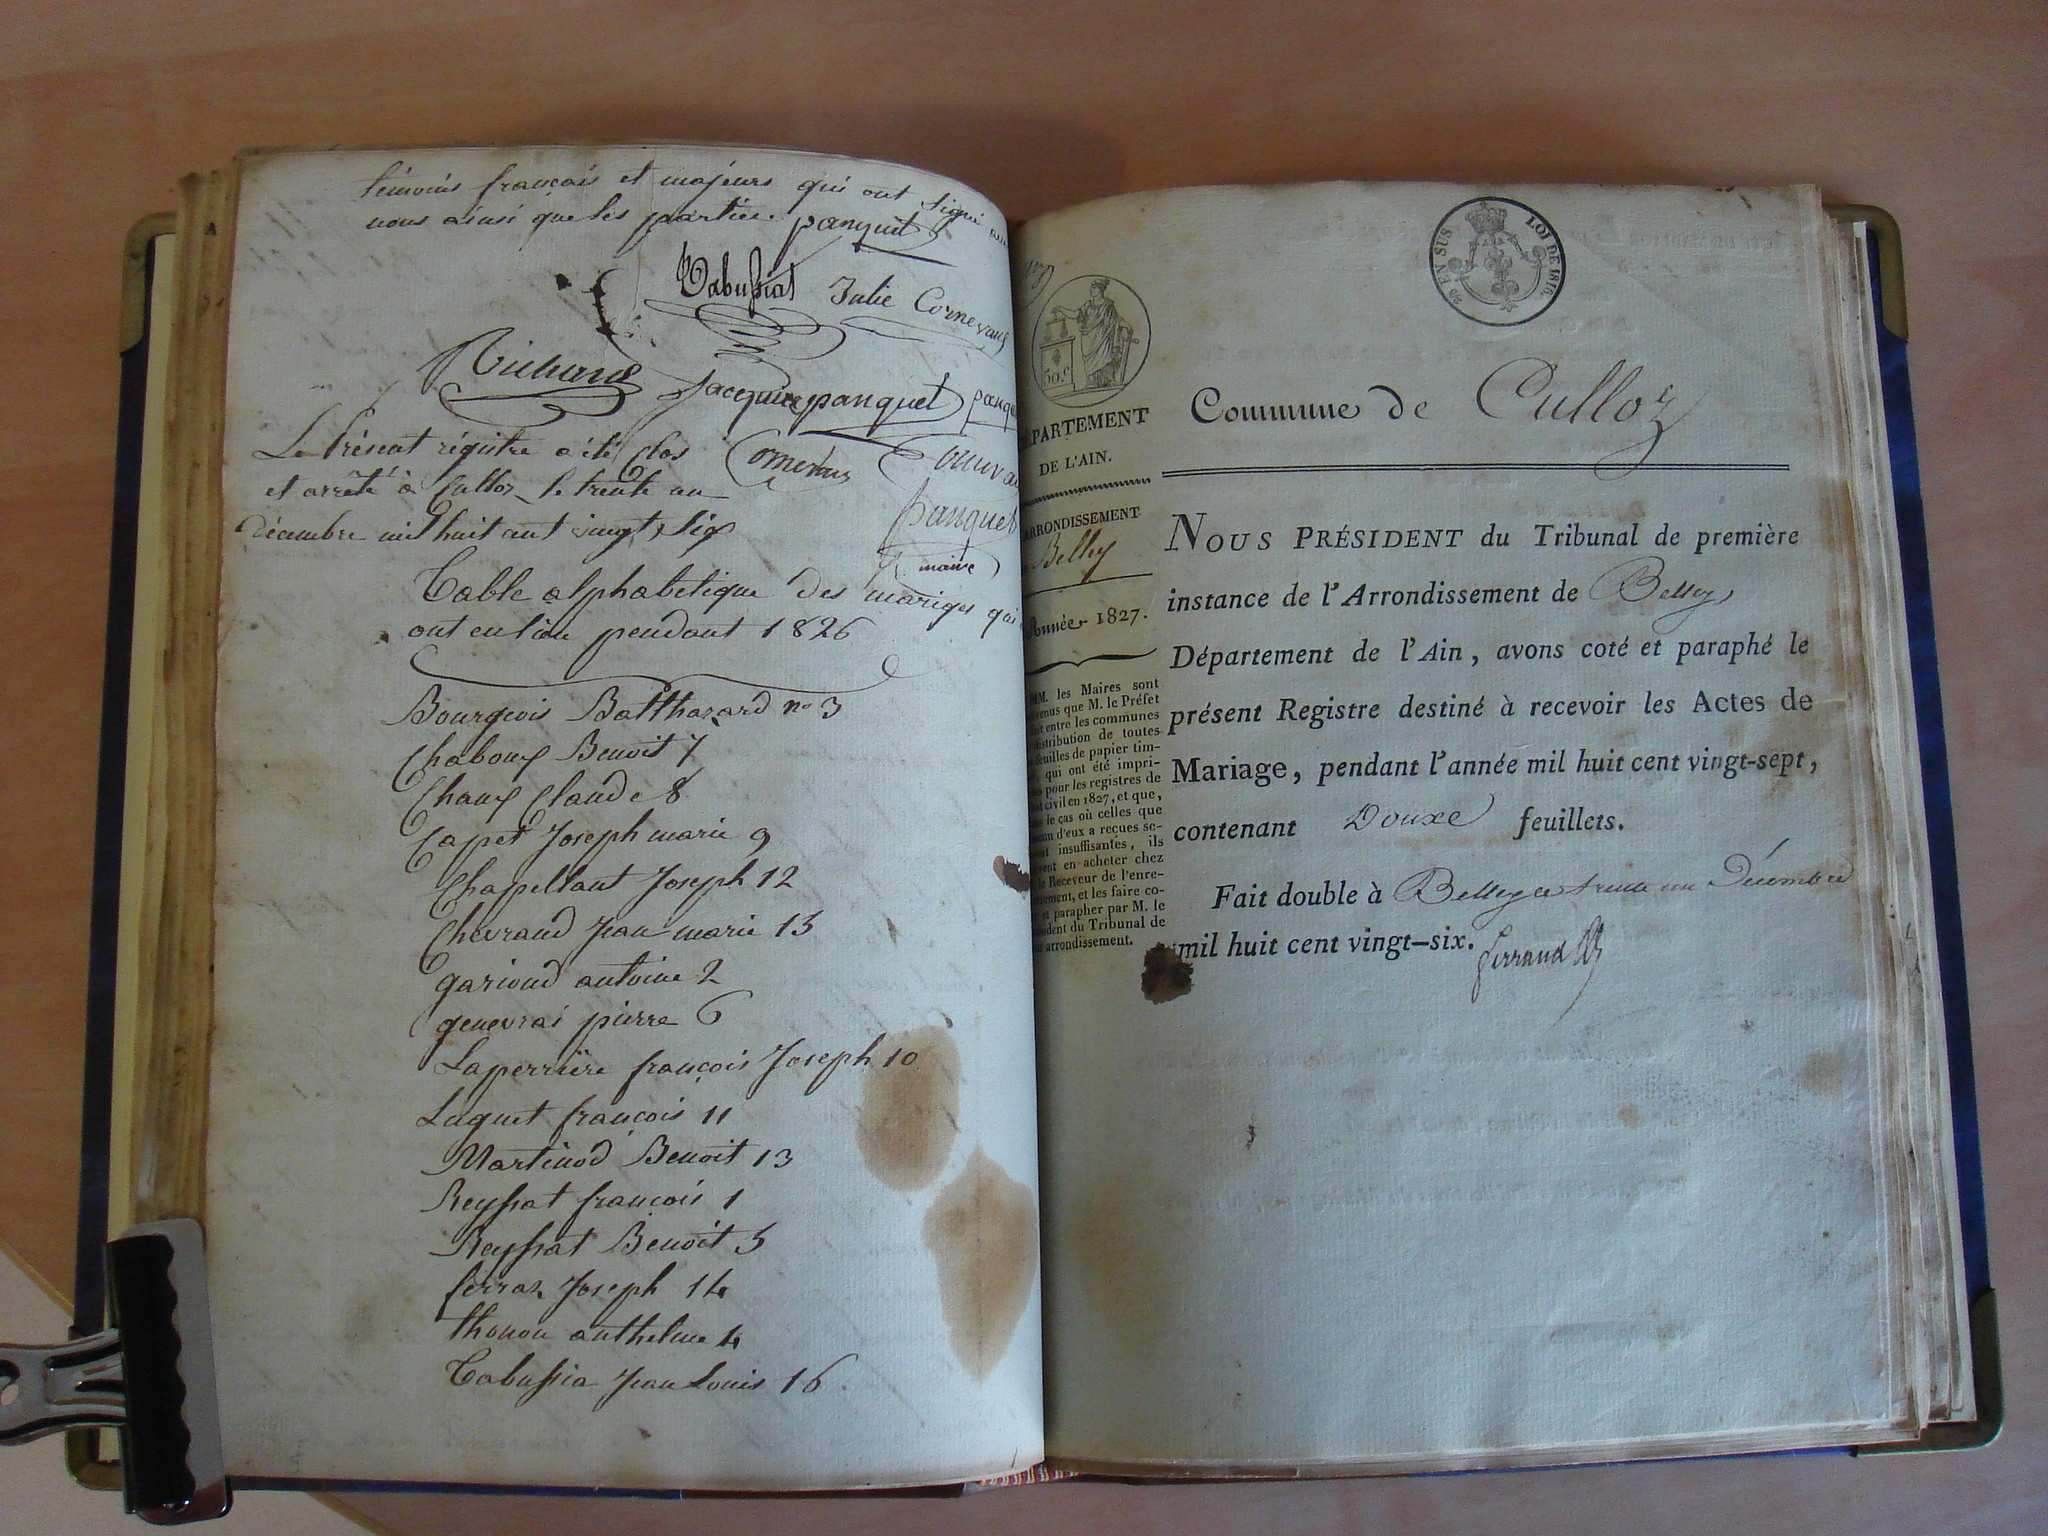 témoins français et majeurs qui ont signé avec
nous ainsi que les parties. panguet
Tabussiat Julie Cornevans
Richard Jacques panguet
Le Présent régistre a été Clos
et arrêté à Culloz, le trente un
Décembre mil huit cent vingt six
panguet
maire
Table alphabetique des mariges qui
ont eu lieu pendant 1826
Bourgeois Balthazard no 3
Chaboux Benoit 7
Chaux Claude 8
Capet Joseph marie 9
Chapellant Joseph 12
Chevrand Jean marie 15
garioud antoine 2
genevrai pierre 6
Laperrière françois Joseph 10
Luquet françois 11
Martinod Benoit 13
Reyssat françois 1
Reyssat Benoit 5
serraz Joseph 14
thonon anthelme 4
Tabussia Jean Louis 16
50 C
DÉPARTEMENT
DE L'AIN.
ARRONDISSEMENT
Belley
Année 1827.
MM. les Maires sont
que M. le Préfet
entre les communes
distribution de toutes
feuilles de papier tim-
qui ont été impri-
pour les registres de
civil en 1827, et que,
le cas où celles que
d'eux a reçues se-
insuffisantes, ils
en acheter chez
le Receveur de l'enre-
et les faire co-
et parapher par M. le
du Tribunal de
arrondissement.
EN SUS LOI DE 1816.
Commune de Culloz
NOUS PRÉSIDENT du Tribunal de première
instance de l'Arrondissement de Belley
Département de l'Ain, avons coté et paraphé le
présent Registre destiné à recevoir les Actes de
Mariage, pendant l'année mil huit cent vingt-sept,
contenant Douxe feuillets.
Fait double à Belley ce trente un Décembre
mil huit cent vingt-six. ferrand